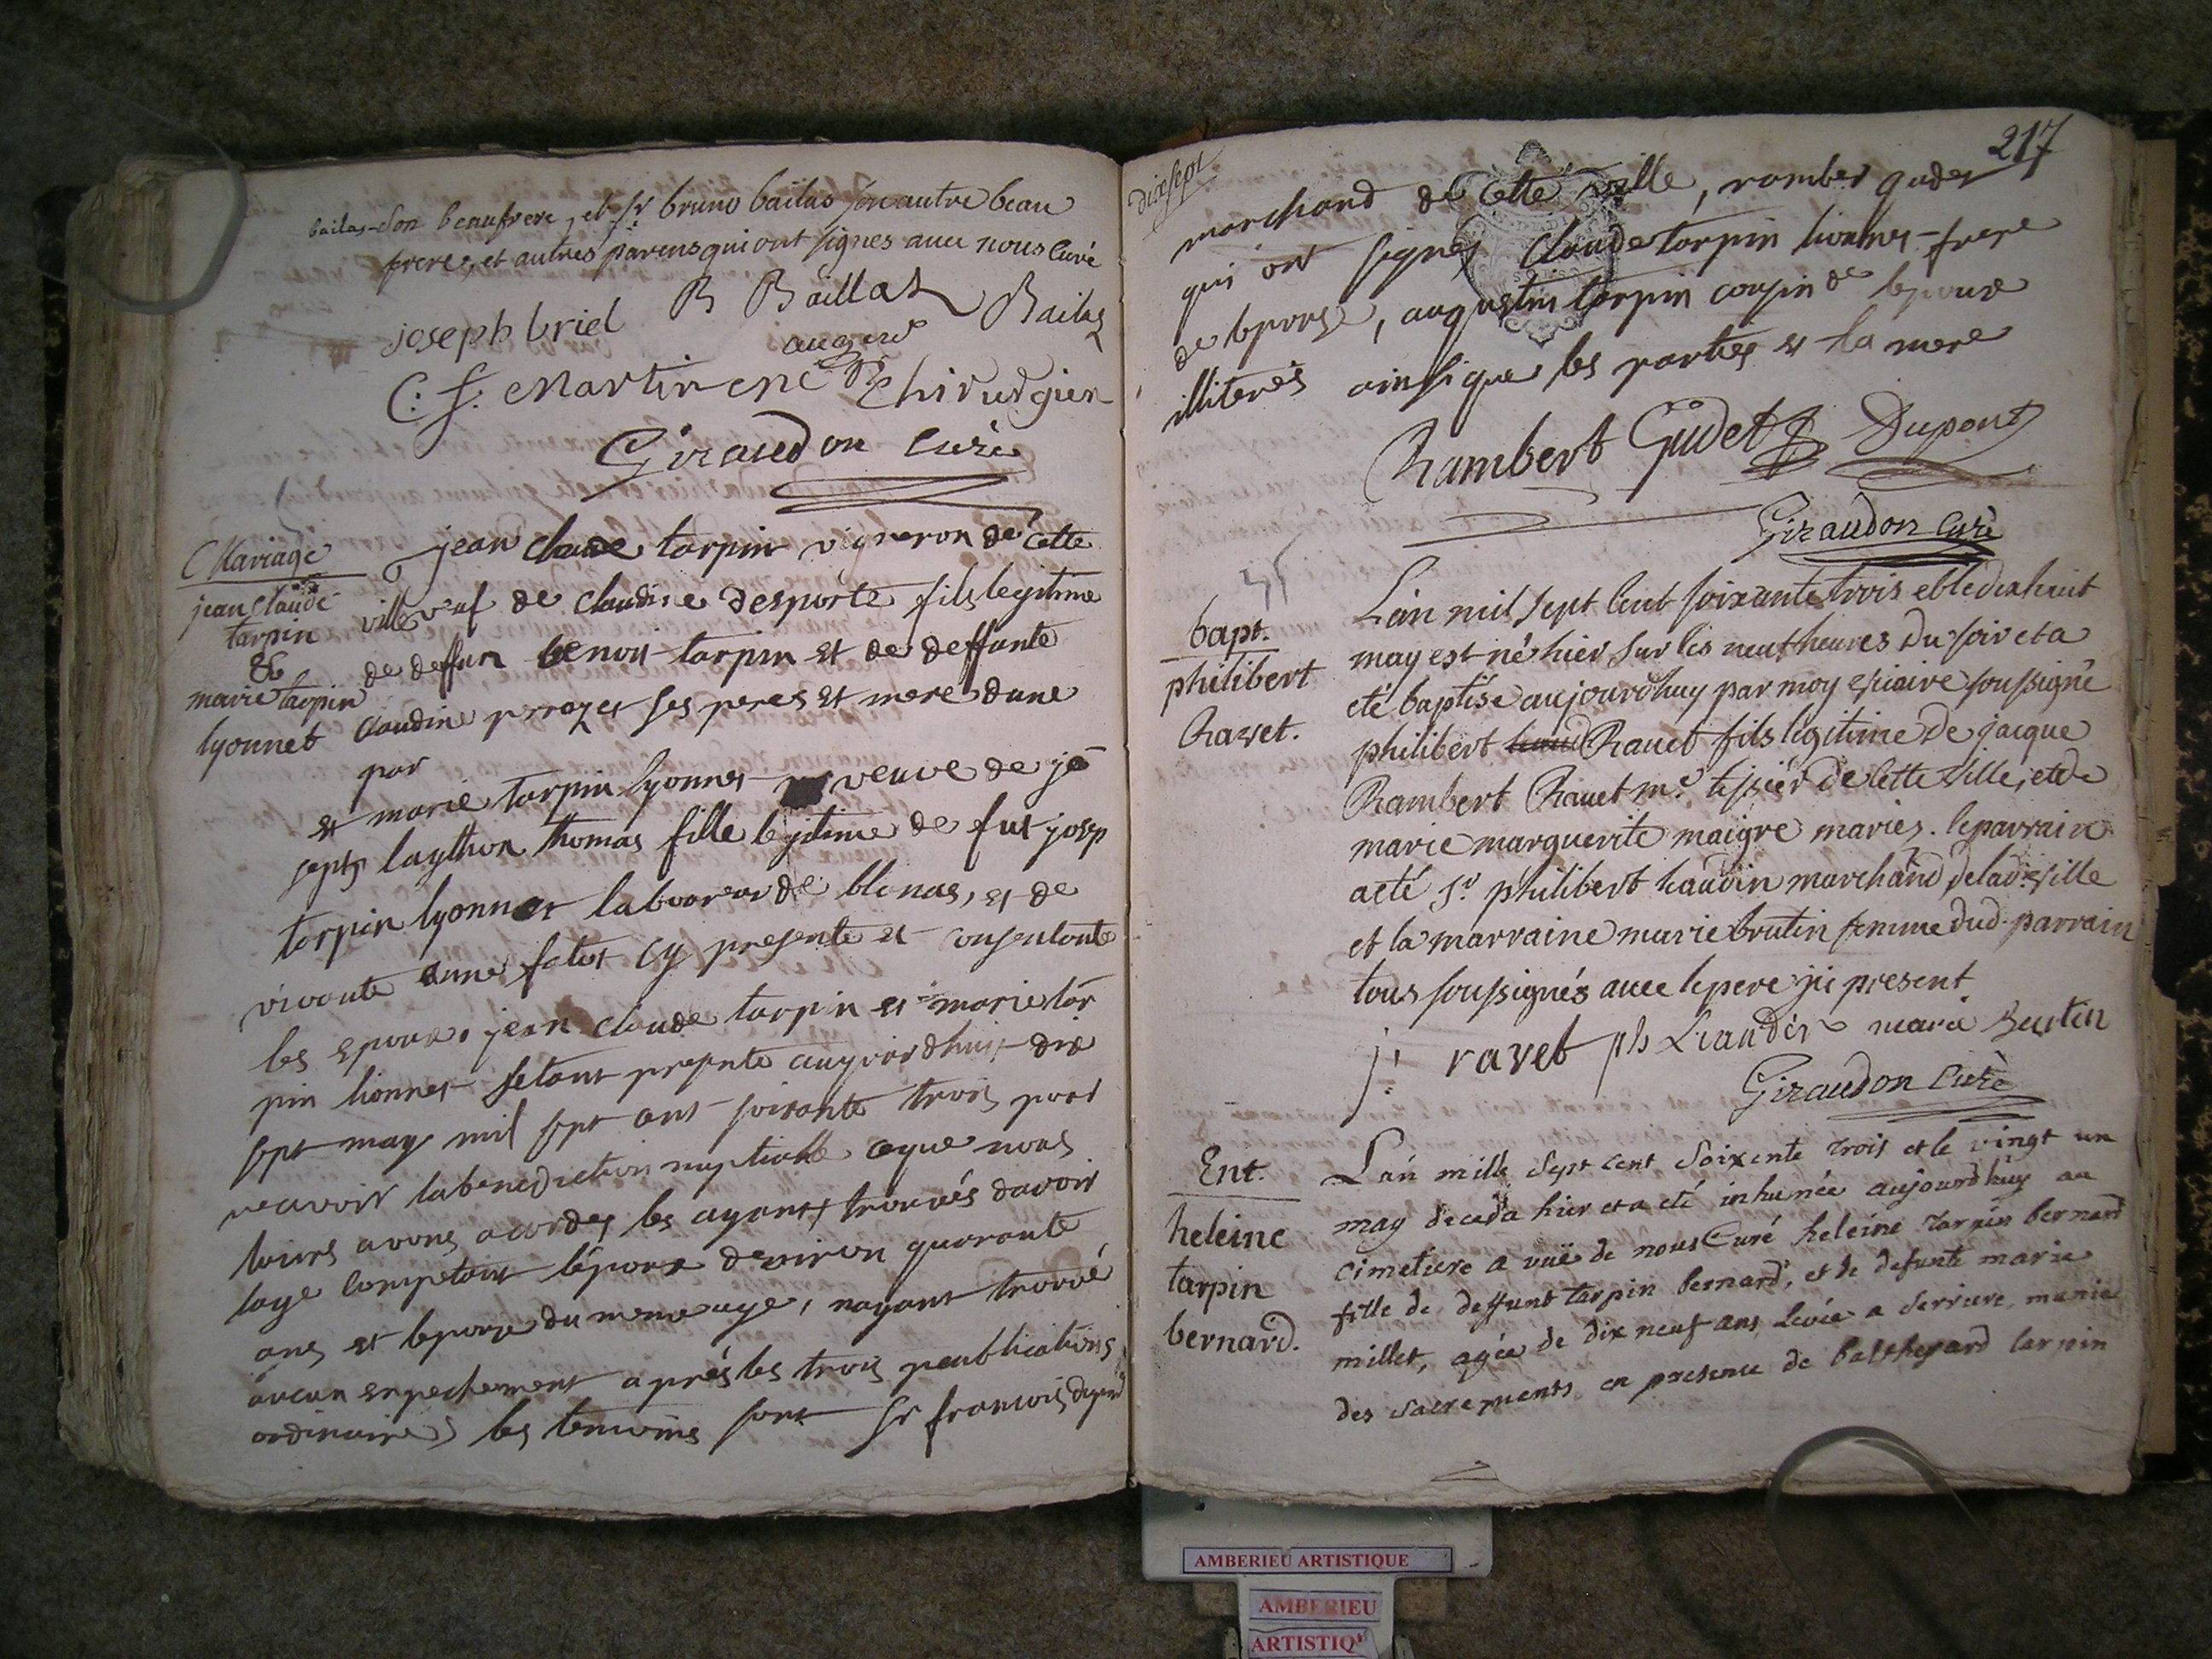 bailas son beaufrere, et sr bruno bailas son autre beau
frere, et autres parens qui ont signes avec nous Curé
joseph briel B Baillat Bailas
augerd
C: f: Martin chirurgien
Giraudon Curé
Mariage
jean claude
tarpin
&
marie tarpin
lyonnet
jean claude tarpin vigneron de cette
ville veuf de claudine desporte fils legitime
de deffun benoit tarpin et de deffunte
claudine prozet ses peres et mere dune
par
et marie tarpin lyonnet veuve de jo
seph laython thomas fille legitime de fut josep
tarpin lyonnet laboureur de blonas, et de
vivante anne falet cy presente et consentante
les epoux. jean claude tarpin et marie tar
pin lionnet setant presente aujourdhuit dix
sept may mil sept ant soixante trois pour
recevoir la benediction nuptialle ce que nous
leurs avons acordes les ayants trouvés davoir
lage competant lépoux denviron quarante
ans et lepouse du meme age, nayant trouvé
aucun enpechement aprés les trois peublications
ordinaires les temoins sont sr francois dupond
dixsept
217
marchand de cette ville, rambert gudet
qui ont signés claude tarpin lionnet frere
de lepouse, augustin tarpin cousin de lepouse
illiterés ainsi que les parties et la mere
Rambert Gudet Dupont
Giraudon Curé
bapt.
philibert
Ravet.
L'an mil sept cent soixante trois et le dix huit
may est né hier sur les neuf heures du soir et a
eté baptisé aujourdhuy par moy vicaire soussigné
philibert Ravet fils légitime de jacque
Rambert Ravet me. tissier de cette ville, et de
marie marguerite maigre mariés. le parrain
a eté sr. philibert haudin marchand de lad. ville
et la marraine marie brutin femme dud. parrain
tous soussignés avec le pere ici present
j: ravet ph marie burtin
Giraudon Curé
Ent.
heleine
tarpin
bernard.
L'an mille sept cent soixente trois et le vingt un
may deceda hier et a eté inhumée aujourdhuy au
cimetiere a vuë de nous Curé heleine tarpin bernard
fille de deffunt tarpin bernard, et de defunte marie
millet, agée de dix neuf ans, levée a Serriere, munie
des sacrements en presence de balthezard tarpin
AMBERIEU ARTISTIQUE
AMBERIEU
ARTISTIQ